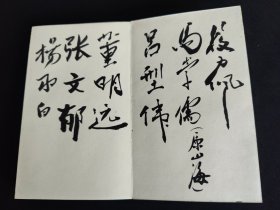 段力佩
马 儒(原山海)
吕型伟
董明远
张文郁
杨 白